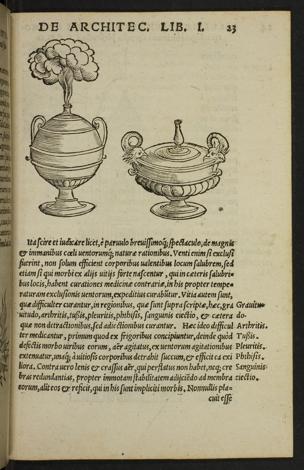 DE ARCHITEC. LIB. I. 23
ita scire et iudicare licet, è paruulo breuissimoq; spectaculo, de magnis
& immanibus cœli uentorumq; naturæ rationibus. Venti enim si exclusi
fuerint, non solum efficient corporibus ualentibus locum salubrem, sed
etiam si qui morbi ex alijs uitijs forte nascentur, qui in cæteris salubri=
bus locis, habent curationes medicinæ contrariæ, in his propter tempe=
raturam exclusionis uentorum, expeditius curabitur. Vitia autem sunt,
quæ difficulter curantur, in regionibus, quæ sunt supra scriptæ, hæc, gra
uitudo, arthritis, tußis, pleuritis, phthisis, sanguinis eiectio, & cætera
quæ non detractionibus, sed adiectionibus curantur. Hæc ideo difficul
ter medicantur, primum quod ex frigoribus concipiuntur, deinde quod
defectis morbo uiribus eorum, aër agitatus, ex uentorum agitationibus
extenuatur, unaq; à uitiosis corporibus detrahit succum, & efficit ea exi
liora. Contra uero lenis & crassus aër, qui perflatus non habet, neq; cre
bras redundantias, propter immotam stabilitatem adijciẽdo ad membra
eorum, alit eos & reficit, qui in his sunt impliciti morbis. Nonnullis pla=
cuit esse
Grauitu=
do.
Arthritis.
Tußis.
Pleuritis.
Phthisis.
Sanguinis
eiectio.